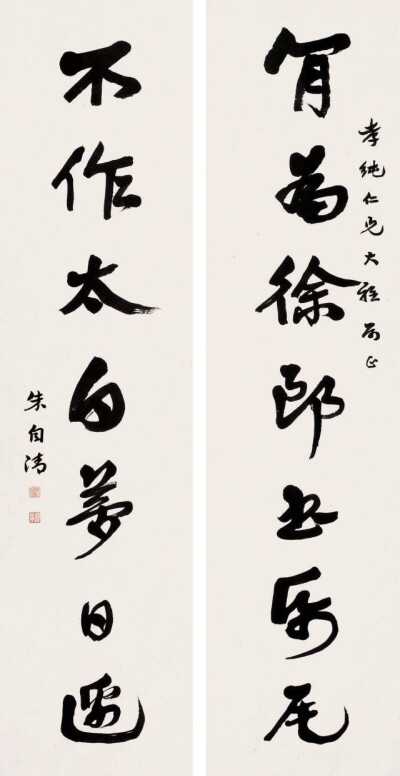 孝純仁兄大雅屬正
肎為徐郎書紙尾
不作太白夢日邊
朱自清